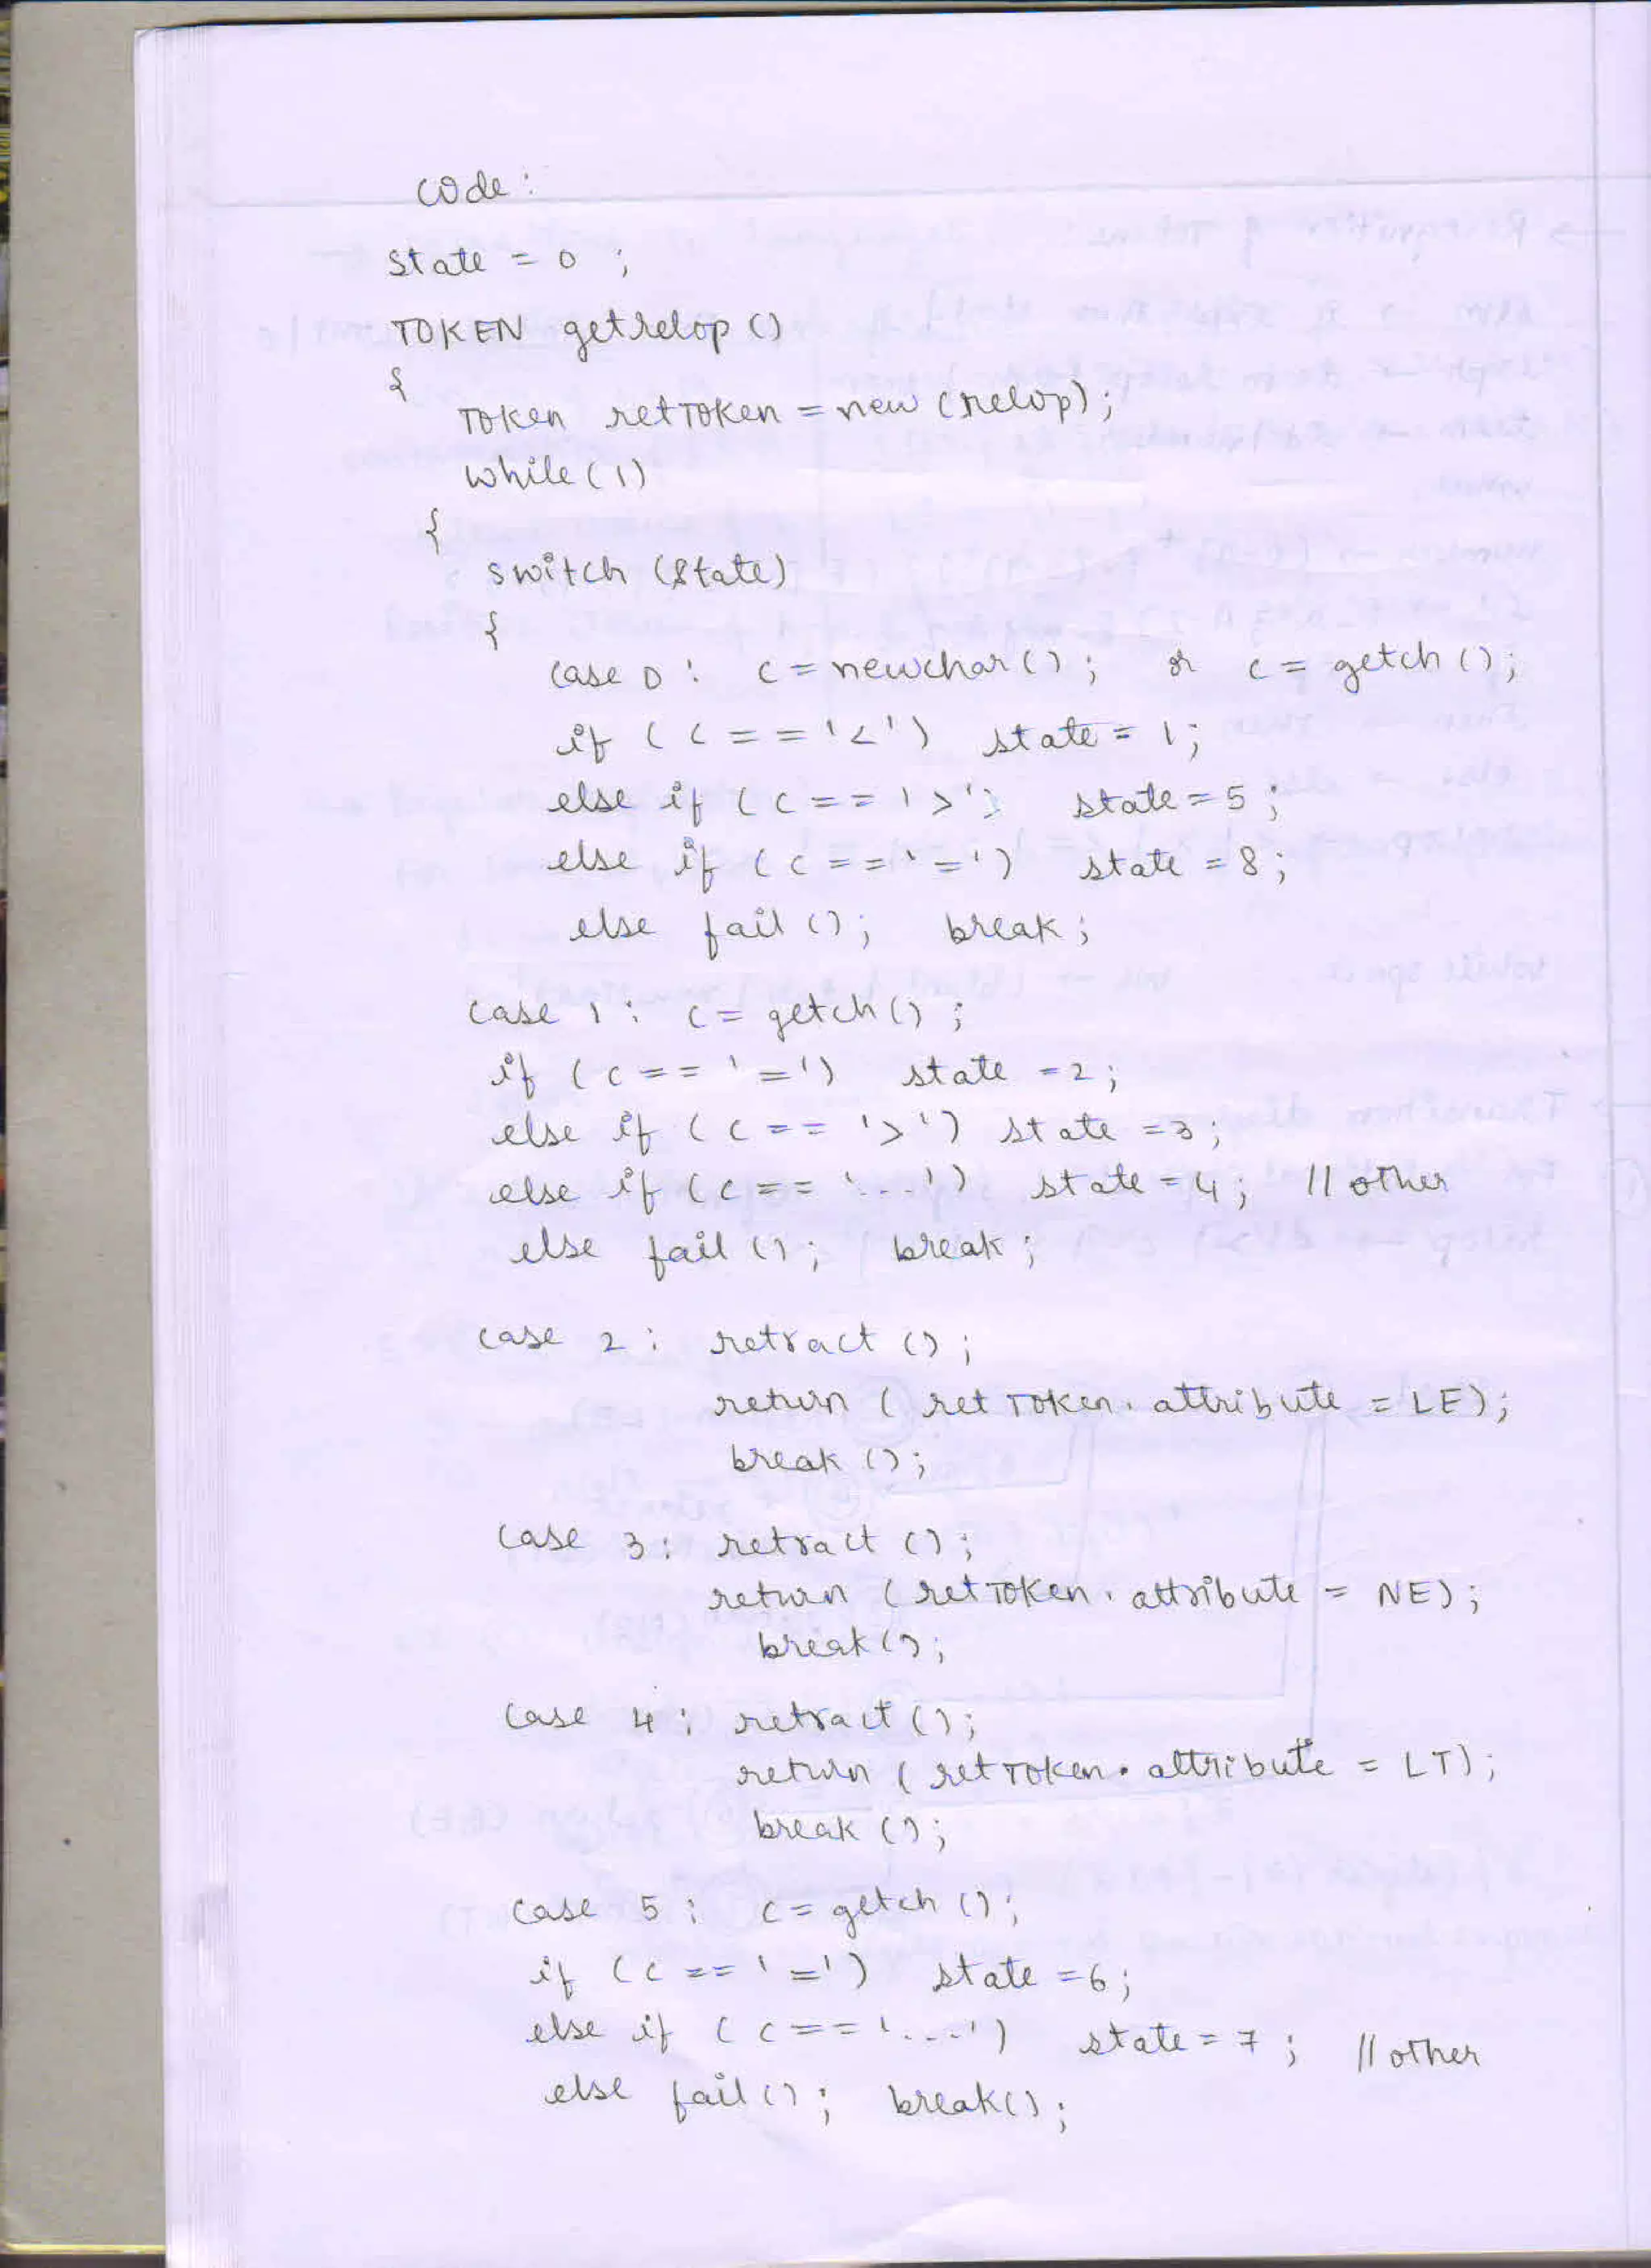 code :
state = 0 ;
TOKEN getrelop ()
{
TOKen retTOKen = new (relop);
while (1)
{
switch (state)
{
case 0 : c = newchar () ; or c = getch () ;
if ( c == '<' ) state = 1 ;
else if ( c == '>' ) state = 5 ;
else if ( c == '=' ) state = 8 ;
else fail () ; break ;
case 1 : c = getch () ;
if ( c == '=' ) state = 2 ;
else if ( c == '>' ) state = 3 ;
else if ( c == '...' ) state = 4 ; // other
else fail () ; break ;
case 2 : retract () ;
return ( ret TOKen . attribute = LE ) ;
break () ;
case 3 : retract () ;
return ( ret TOKen . attribute = NE ) ;
break () ;
case 4 : retract () ;
return ( ret TOKen . attribute = LT ) ;
break () ;
case 5 : c = getch () ;
if ( c == '=' ) state = 6 ;
else if ( c == '....' ) state = 7 ; // other
else fail () ; break () ;